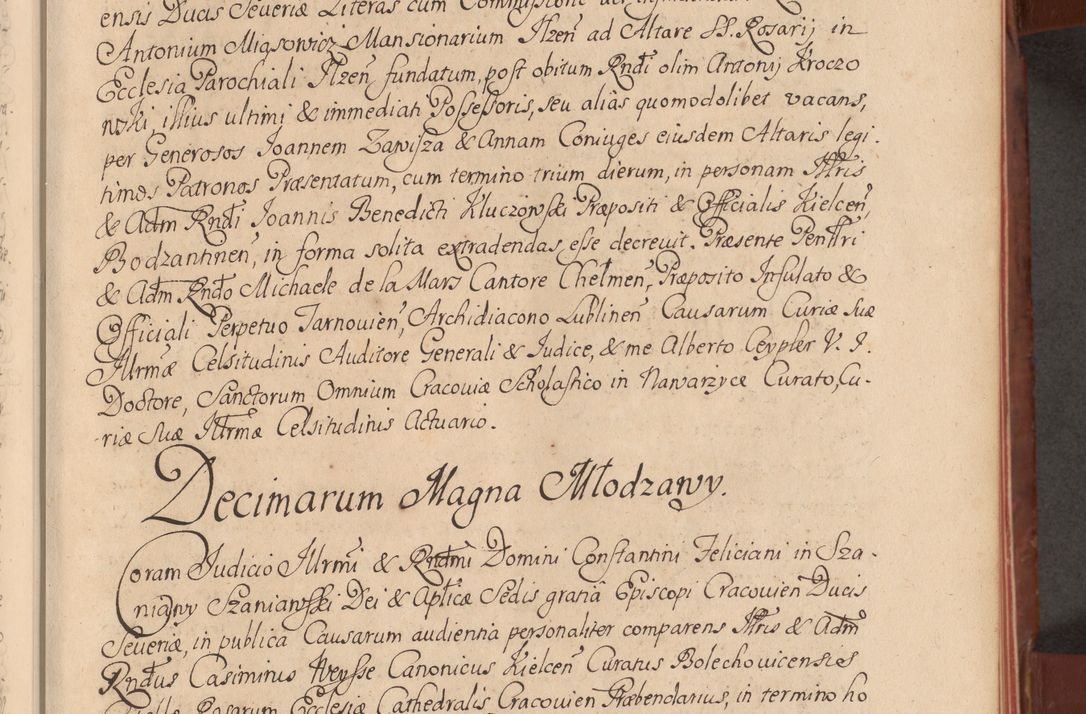 ensis Ducis Severiæ Literas cum Commissione
Antonium Miąsowicz Mansionarium Ilzen̄ ad Altare SS. Rosarij in
Ecclesia Parochiali Ilzen̄ fundatum, post obitum Rndi olim Antonij Kroczo
wski, illius ultimi & immediati Possessoris, seu aliàs quomodolibet vacans,
per Generosos Joannem Zawisza & Annam Coniuges eiusdem Altaris legi-
timos Patronos Præsentatum, cum termino trium dierum, in personam Illtris
& Adm Rndi Joannis Benedicti Kluczowski Præpositi & Officialis Kielcen̄,
Bodzantinen̄, in forma solita extradendas esse decrevit. Præsente Penlltri
& Adm Rndo Michaele de la Mars Cantore Chełmen̄, Præposito Infulato &
Officiali Perpetuo Tarnovien̄, Archidiacono Lublinen̄ Causarum Curiæ Suæ
Illrmæ Celsitudinis Auditore Generali & Judice, & me Alberto Ceypler V. J.
Doctore, Sanctorum Omnium Cracoviæ Scholastico in Nawarzyce Curato, Cu-
riæ Suæ Illrmæ Celsitudinis Actuario.
Decimarum Magna Młodzawy.
Coram Judicio Illrmi & Rndmi Domini Constantini Feliciani in Sza-
niawy Szaniawski Dei & Aplicæ Sedis gratiâ Episcopi Cracovien̄ Ducis
Severiæ, in publica Causarum audientia personaliter comparens Illtris & Adm
Rndus Casimirus Weysse Canonicus Kielcen̄ Curatus Bolechovicensis
Rosarum Ecclesiæ Cathedralis Cracovien̄ Præbendarius, in termino ho